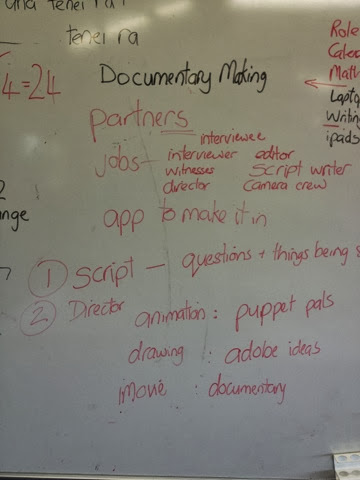 tenei ra
tenei ra
4=24
Documentary Making
Role
Math
Laptop
Writing
ipads
partners
interviewee
jobs- interviewer editor
witnesses Script writer
director camera crew
app to make it in
ange
1 Script - questions + things being s
2 Director animation: puppet pals
drawing : adobe ideas
imovie : documentary